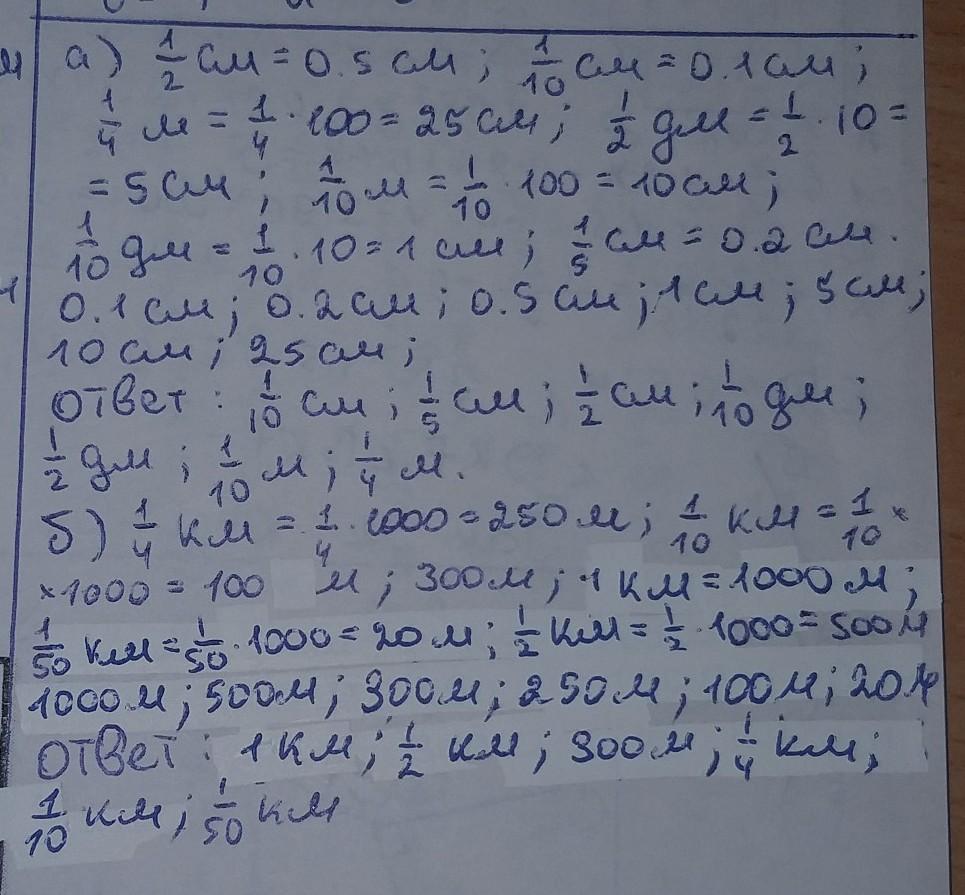 а) 1/2 см = 0.5 см; 1/10 см = 0.1 см;
1/4 м = 1/4 · 100 = 25 см; 1/2 дм = 1/2 · 10 =
= 5 см; 1/10 м = 1/10 · 100 = 10 см;
1/10 дм = 1/10 · 10 = 1 см; 1/5 см = 0.2 см.
0.1 см; 0.2 см; 0.5 см; 1 см; 5 см;
10 см; 25 см;
ответ: 1/10 см; 1/5 см; 1/2 см; 1/10 дм;
1/2 дм; 1/10 м; 1/4 м.
б) 1/4 км = 1/4 · 1000 = 250 м; 1/10 км = 1/10 ×
×1000 = 100 м; 300 м; 1 км = 1000 м;
1/50 км = 1/50 · 1000 = 20 м; 1/2 км = 1/2 · 1000 = 500 м
1000 м; 500 м; 300 м; 250 м; 100 м; 20 м
ответ: 1 км; 1/2 км; 300 м; 1/4 км;
1/10 км; 1/50 км